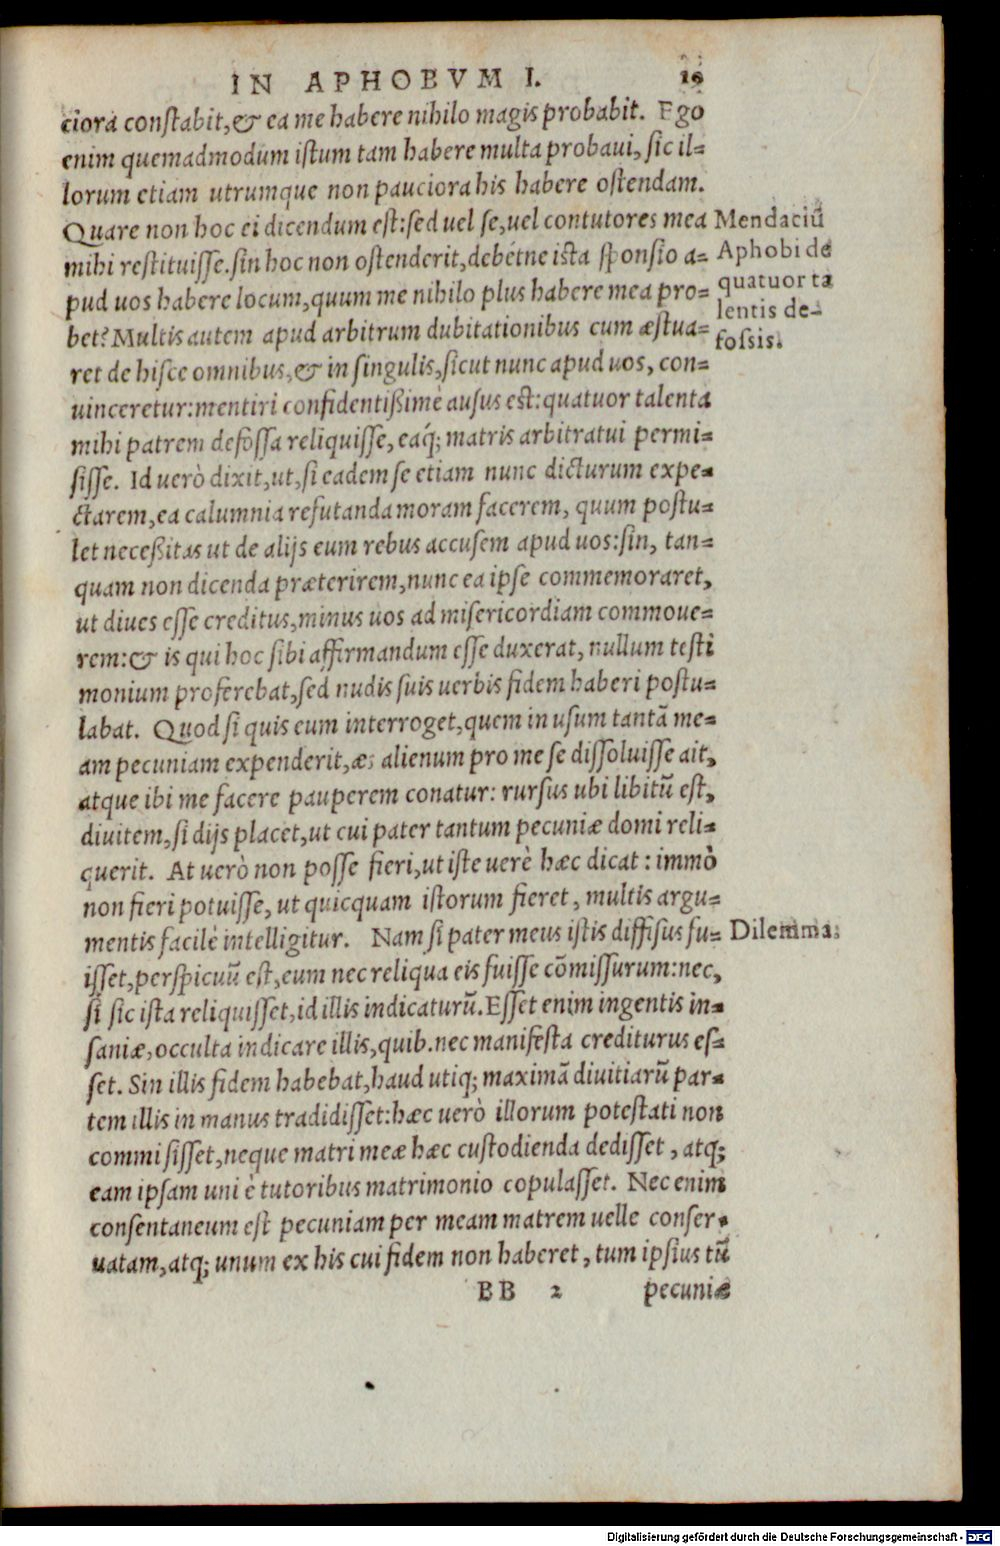 IN APHOBVM I. 19
ciora constabit, & ea me habere nihilo magis probabit. Ego
enim quemadmodum istum tam habere multa probaui, sic il=
lorum etiam utrumque non pauciora his habere ostendam.
Quare non hoc ei dicendum est: sed uel se, uel contutores mea
mihi restituisse. sin hoc non ostenderit, debétne ista sponsio a=
pud uos habere locum, quum me nihilo plus habere mea pro=
bet? Multis autem apud arbitrum dubitationibus cum æstua=
ret de hisce omnibus, & in singulis, sicut nunc apud uos, con=
uinceretur: mentiri confidentißimè ausus est: quatuor talenta
mihi patrem defossa reliquisse, eaq́; matris arbitratui permi=
sisse. Id uerò dixit, ut, si eadem se etiam nunc dicturum expe=
ctarem, ea calumnia refutanda moram facerem, quum postu=
let neceßitas ut de alijs eum rebus accusem apud uos: sin, tan=
quam non dicenda præterirem, nunc ea ipse commemoraret,
ut diues esse creditus, minus uos ad misericordiam commoue=
rem: & is qui hoc sibi affirmandum esse duxerat, nullum testi
monium proferebat, sed nudis suis uerbis fidem haberi postu=
labat. Quod si quis eum interroget, quem in usum tantā me=
am pecuniam expenderit, æs alienum pro me se dissoluisse ait,
atque ibi me facere pauperem conatur: rursus ubi libitū est,
diuitem, si dijs placet, ut cui pater tantum pecuniæ domi reli=
querit. At uerò non posse fieri, ut iste uerè hæc dicat: immò
non fieri potuisse, ut quicquam istorum fieret, multis argu=
mentis facilè intelligitur. Nam si pater meus istis diffisus fu=
isset, perspicuū est, eum nec reliqua eis fuisse cōmissurum: nec,
si sic ista reliquisset, id illis indicaturū. Esset enim ingentis in=
saniæ, occulta indicare illis, quib. nec manifesta crediturus es=
set. Sin illis fidem habebat, haud utiq; maximā diuitiarū par=
tem illis in manus tradidisset: hæc uerò illorum potestati non
commisisset, neque matri meæ hæc custodienda dedisset, atq;
eam ipsam uni è tutoribus matrimonio copulasset. Nec enim
consentaneum est pecuniam per meam matrem uelle conser=
uatam, atq; unum ex his cui fidem non haberet, tum ipsius tū
BB 2 pecuniæ
Mendaciū
Aphobi de
quatuor ta
lentis de=
fossis.
Dilemma.
Digitalisierung gefördert durch die Deutsche Forschungsgemeinschaft - DFG